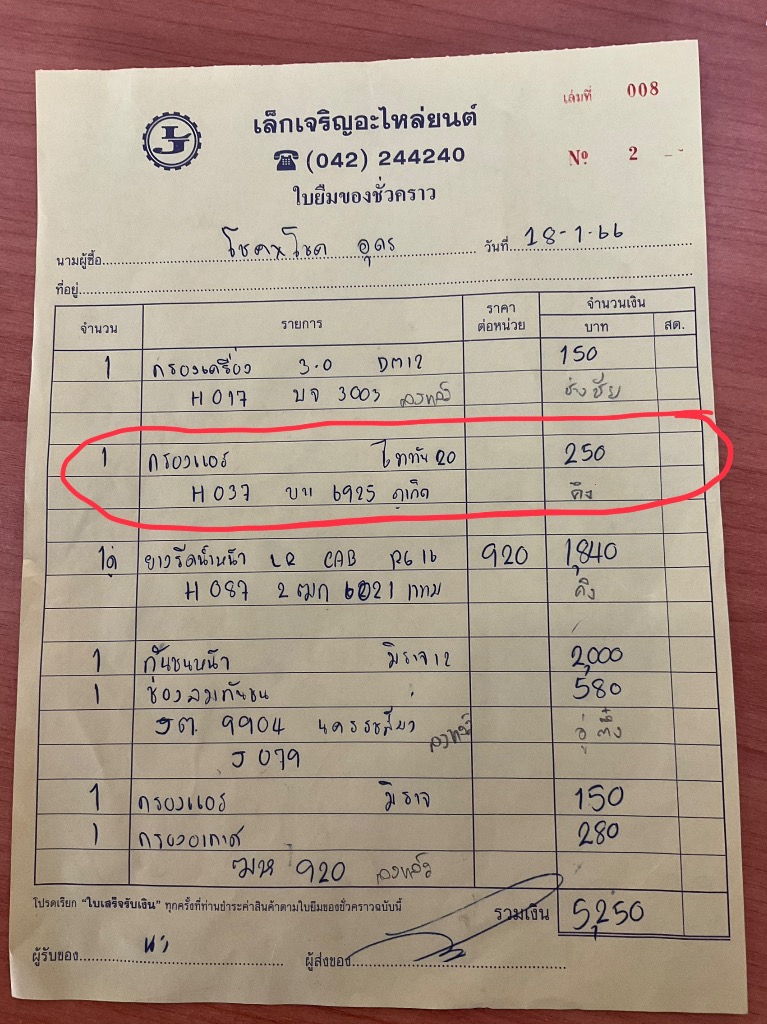 เล่มที่ 008
เล็กเจริญอะไหล่ยนต์
☎ (042) 244240
Nº 2
ใบยืมของชั่วคราว
นามผู้ซื้อ โชคxโชค อุดร วันที่ 18-1-66
ที่อยู่
จำนวน รายการ ราคาต่อหน่วย จำนวนเงิน บาท สต.
1 กรองเครื่อง 3.0 DM12 150
H 017 บจ 3003 ลงแล้ว ช่างชัย
1 กรองแอร์ ไททัน 20 250
H 037 6925 ภูเก็ต คิง
1คู่ ยางรีดน้ำหน้า LR CAB 920 1,840
H 087 2ฒก 6021 กทม คิง
1 กันชนหน้า มิราจ 12 2,000
1 ช่องลมกันชน " 580
9904 ลงแล้ว อู่
J 079
1 กรองแอร์ มิราจ 150
1 กรองอากาศ 280
ฒห 920 ลงแล้ว
โปรดเรียก "ใบเสร็จรับเงิน" ทุกครั้งที่ท่านชำระค่าสินค้าตามใบยืมของชั่วคราวฉบับนี้
รวมเงิน 5,250
ผู้รับของ ผู้ส่งของ